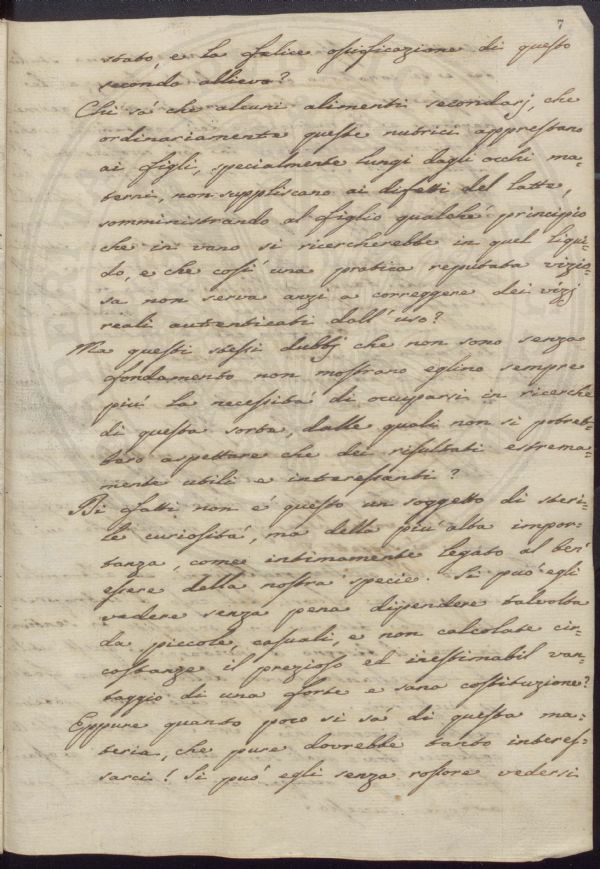 7
stato, e la felice ossificazione di questo
secondo allievo?
Chi sà che alcuni alimenti secondarj, che
ordinariamente queste nutrici apprestano
ai figli, specialmente lungi dagli occhi ma=
terni, non suppliscano ai difetti del latte,
somministrando al figlio qualche principio
che in vano si ricercherebbe in quel liqui=
do, e che così una pratica reputata vizio=
sa non serva anzi a correggere dei vizj
reali autenticati dall' uso?
Ma questi stessi dubbj che non sono senza
fondamento non mostrano eglino sempre
più la necessità di occuparsi in ricerche
di questa sorta, dalle quali non si potreb=
bero aspettare che dei risultati estrema=
mente utili e interessanti?
Di fatti non è questo un soggetto di steri=
le curiosità, ma della più alta impor=
tanza, come intimamente legato al ben'
essere della nostra specie. Si può egli
vedere senza pena dipendere talvolta
da piccole, casuali, e non calcolate cir=
costanze il prezioso ed inestimabil van=
taggio di una forte e sana costituzione?
Eppure quanto poco si sà di questa ma=
teria, che pure dovrebbe tanto interes=
sarci! Si può egli senza rossore vedersi